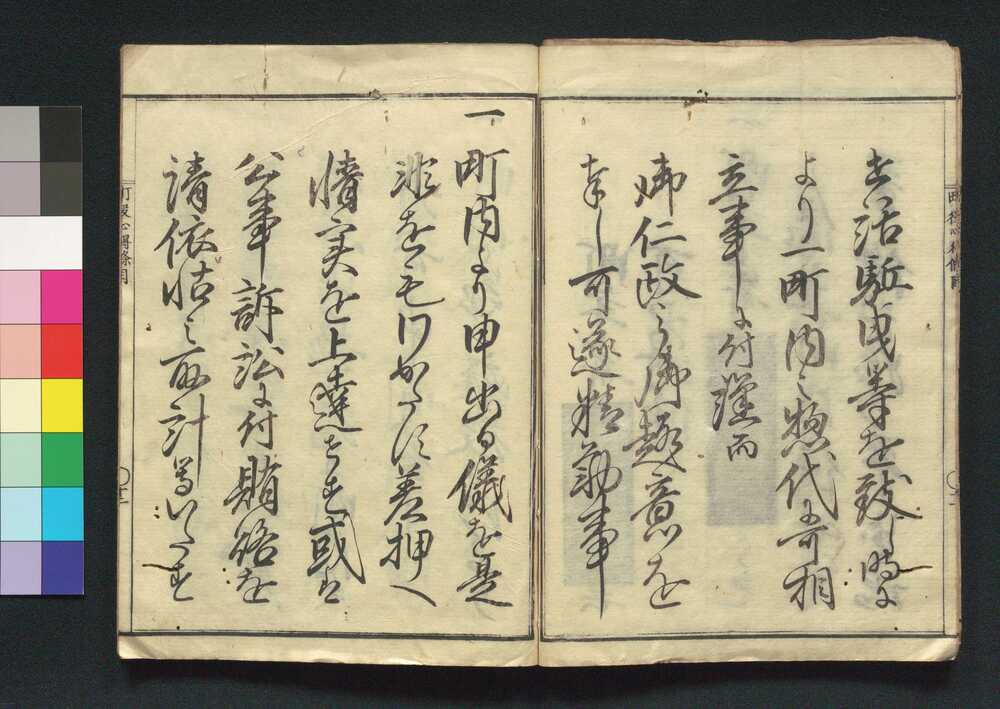 活駈曳等を致し時に
より一町内之惣代ニ可相
立事ニ付謹而
御仁政之御趣意を
奉し可遂精勤事
一 町内より申出る儀を是
非をも差押へ
情実を上達せす或は
公事訴訟ニ付賄賂を
請依怙之取計等いたす
町役心得條目